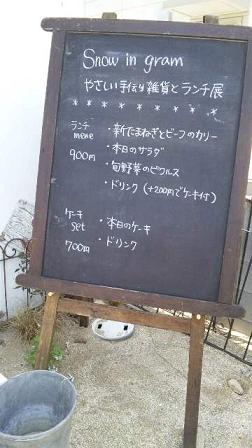 Snow in gram
やさしい手作り雑貨とランチ展
* * * * * * * * * *
ランチ menu 900円
・新たまねぎとビーフのカリー
・本日のサラダ
・旬野菜のピクルス
・ドリンク (+200円でケーキ付)
ケーキ set 700円
・本日のケーキ
・ドリンク